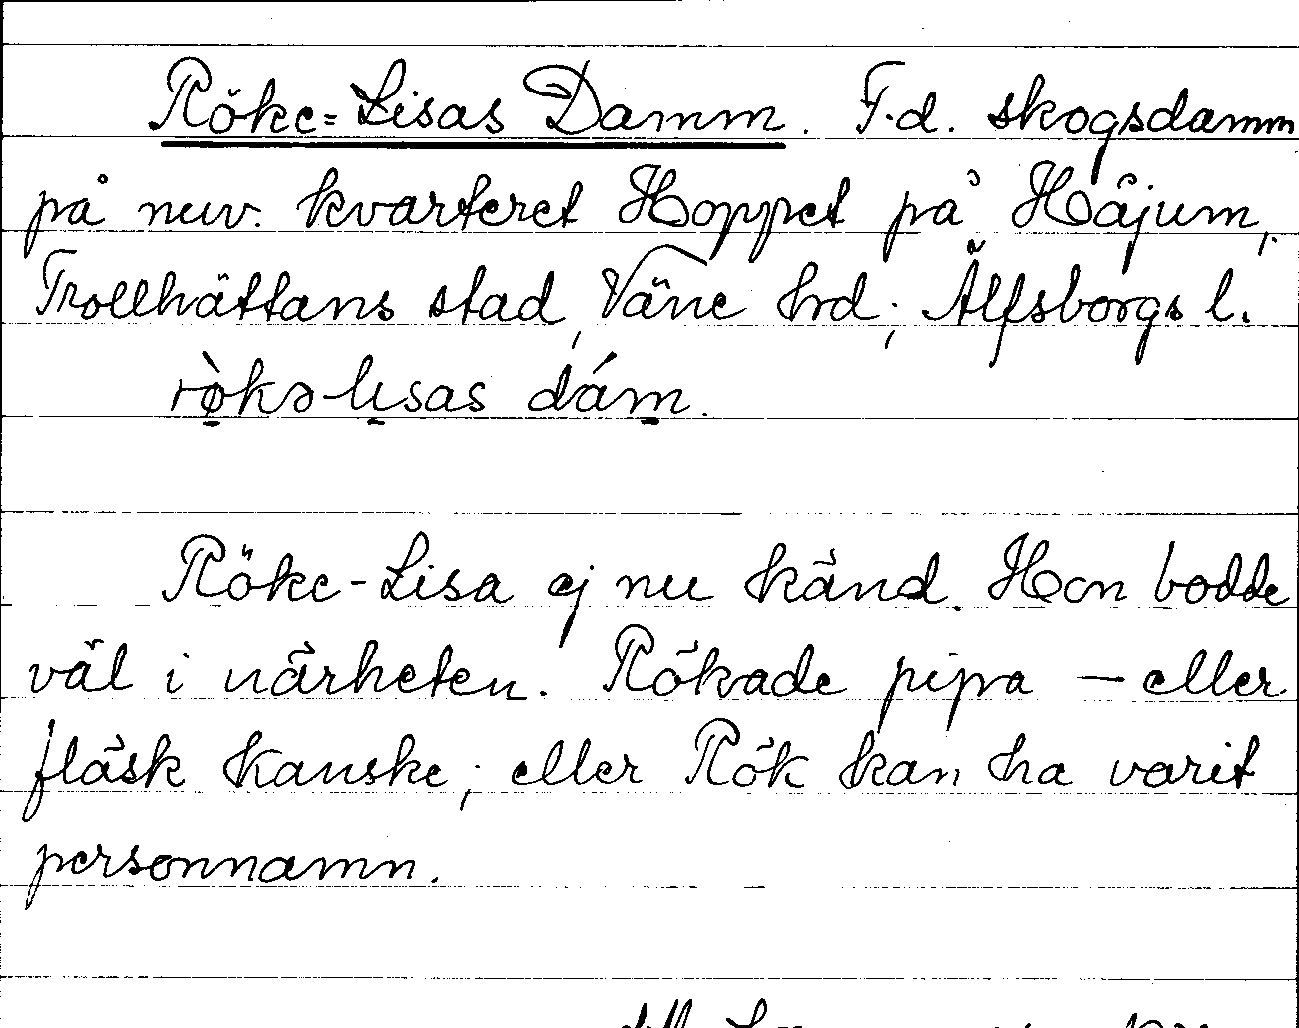 Röke-Lisas Damm. F.d. skogsdamm
på nuv. kvarteret Hoppet på Håjum,
Trollhättans stad, Väne hrd; Älfsborgs l.
rø̀kə-lisas dám.
Röke-Lisa ej nu känd. Hon bodde
väl i närheten. Rökade pipa — eller
fläsk kanske; eller Rök kan ha varit
personnamn.